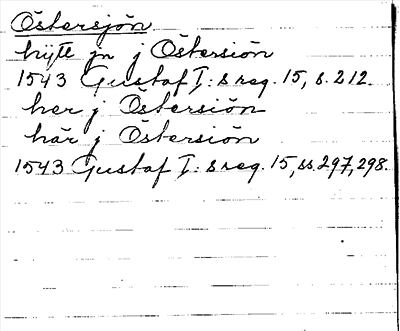 Östersjön
hijte jn j Östersiön
1543 Gustaf I:s reg. 15, s. 212.
her j Östersiön
här j Östersiön
1543 Gustaf I:s reg. 15, ss. 297, 298.